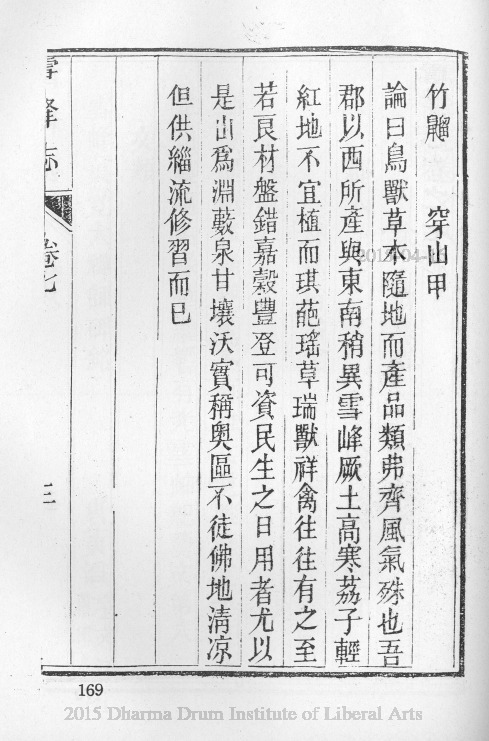 竹䶉　穿山甲
論曰鳥獸草木隨地而產品類弗齊風氣殊也吾
郡以西所產與東南稍異雪峰厥土高寒荔子輕
紅地不宜植而琪葩瑤草瑞獸祥禽往往有之至
若良材盤錯嘉穀豐登可資民生之日用者尤以
是山爲淵藪泉甘壤沃實稱奧區不徒佛地清凉
但供緇流修習而已
雪峰志
卷七
三
169
2015 Dharma Drum Institute of Liberal Arts